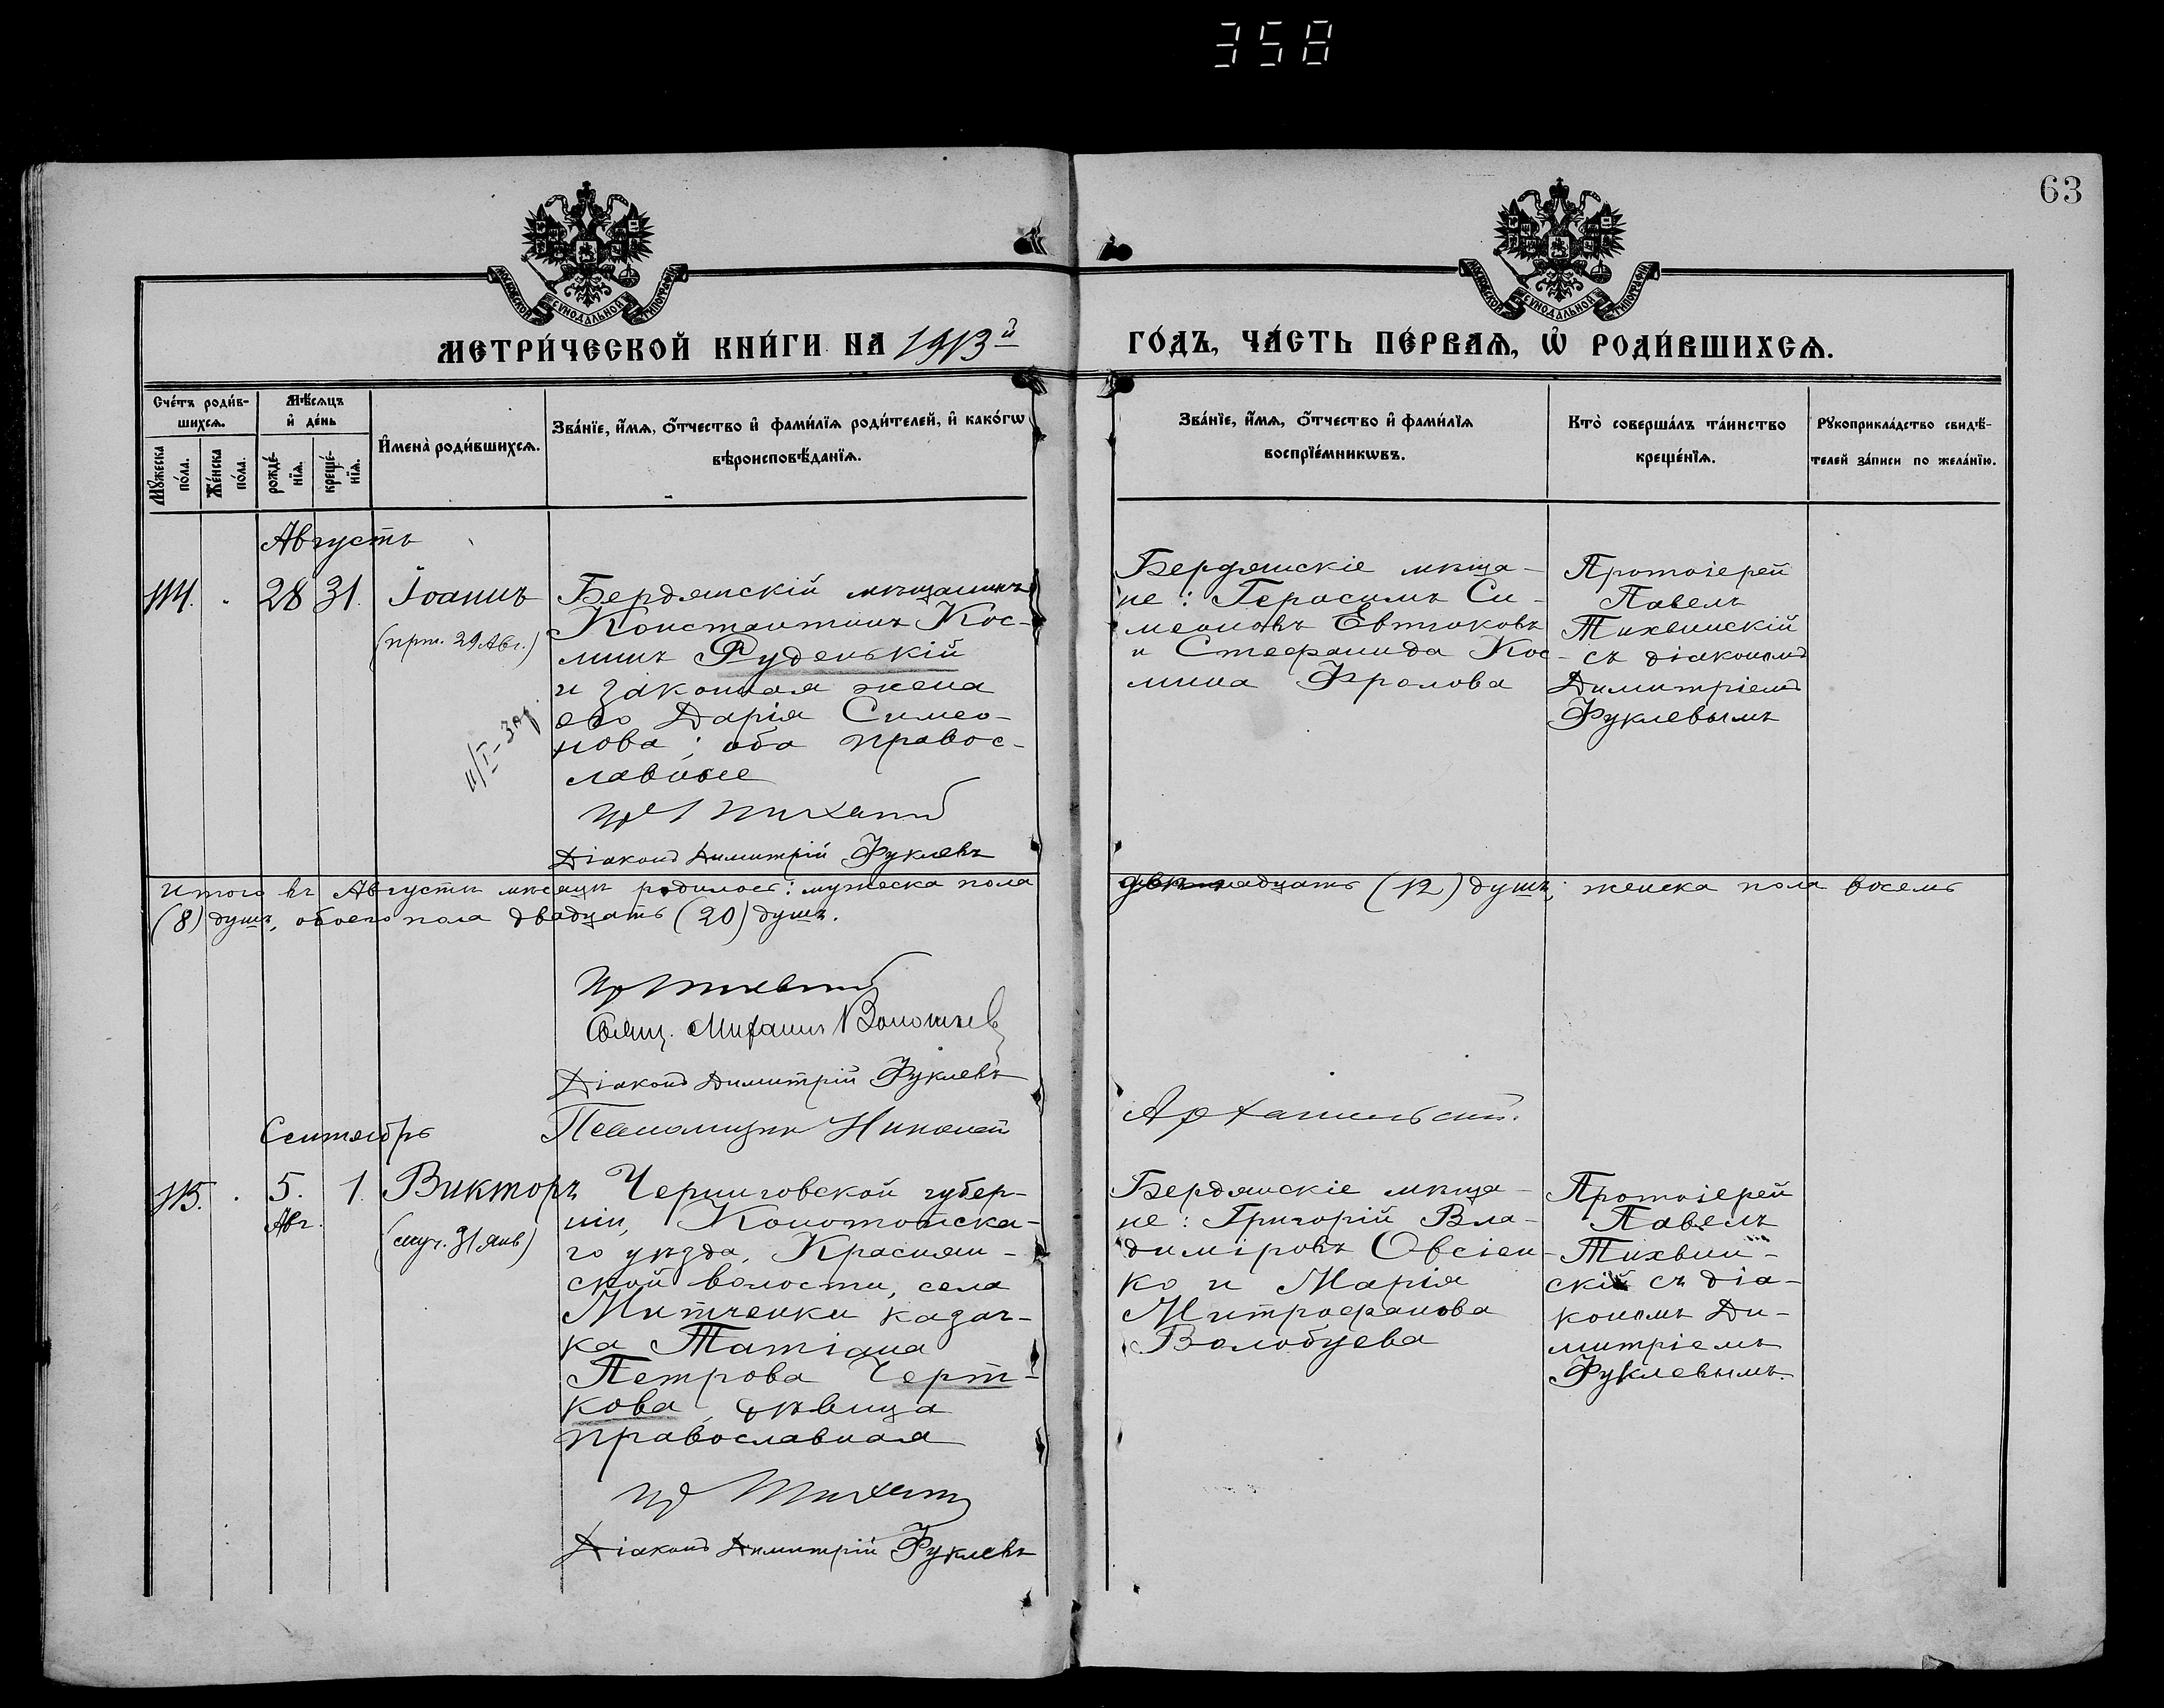 358
63
МОСКОВСКОЙ СѴНОДАЛЬНОЙ ТИПОГРАФІИ
МОСКОВСКОЙ СѴНОДАЛЬНОЙ ТИПОГРАФІИ
МЕТРИ́ЧЕСКОЙ КНИ́ГИ НА 1913й
ГО́ДЪ, ЧА́СТЬ ПЕ́РВАѦ, Ѡ҆ РОДИ́ВШИХСѦ.
Сче́тъ роди́в-
шихсѧ.
Мѣ́сѧцъ
и҆ де́нь
Мꙋ́жеска
по́ла.
Же́нска
по́ла.
рожде́-
нїѧ.
креще́-
нїѧ.
И҆мена̀ роди́вшихсѧ.
Зва́нїе, и҆́мѧ, ѻ҆́тчество и҆ фами́лїѧ роди́телей, и҆ како́гѡ
вѣроисповѣ́данїѧ.
Зва́нїе, и҆́мѧ, ѻ҆́тчество и҆ фами́лїѧ
воспрїе́мникѡвъ.
Кто̀ соверша́лъ та́инство
креще́нїѧ.
Рꙋкоприкла́дство свидѣ́-
телей за́писи по жела́нїю.
Августъ
114. . 28 31. Іоаннъ
(прт. 29 Авг.)
Бердянскій мѣщанинъ
Константинъ Кос-
минъ Руденькій
и законная жена
его Дарія Симео-
нова; оба правос-
лавные
Діаконъ Димитрій Фуклевъ
Бердянскіе мѣща-
не: Герасимъ Си-
меоновъ Евтюковъ
и Стефанида Кос-
мина Фролова
Протоіерей
Павелъ
Тихвинскій
съ діакономъ
Димитріемъ
Фуклевымъ
Итого въ Августѣ мѣсяцѣ родилось: мужеска пола двѣнадцать (12) душъ, женска пола восемь
(8) душъ, обоего пола двадцать (20) душъ.
Свящ. Михаилъ
Діаконъ Димитрій Фуклевъ
Псаломщикъ Николай Архангельскій.
Сентябрь
115. . 5. 1. Викторъ
Авг.
(муч. 31 Янв)
Черниговской губер-
ніи, Конотопска-
го уѣзда, Краснян-
ской волости, села
Митченки казач-
ка Татіана
Петрова Черт-
кова, дѣвица
православная
Діаконъ Димитрій Фуклевъ
Бердянскіе мѣща-
не: Григорій Вла-
диміровъ Овсіен-
ко и Марія
Митрофанова
Волобуева
Протоіерей
Павелъ
Тихвин-
скій съ діа-
кономъ Ди-
митріемъ
Фуклевымъ.